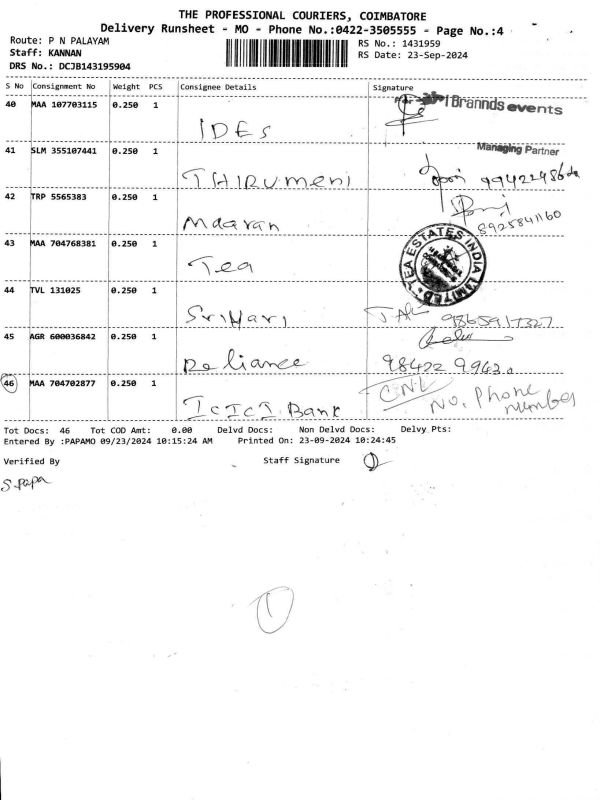 THE PROFESSIONAL COURIERS, COIMBATORE
Delivery Runsheet - MO - Phone No.:0422-3505555 - Page No.:4
Route: P N PALAYAM
RS No.: 1431959
Staff: KANNAN
RS Date: 23-Sep-2024
DRS No.: DCJB143195904
S No Consignment No Weight PCS Consignee Details Signature
40 MAA 107703115 0.250 1 IDES For Brannds events
41 SLM 355107441 0.250 1 THIRUMENI Managing Partner
42 TRP 5565383 0.250 1 Maaran 8925841160
43 MAA 704768381 0.250 1 Tea TEA ESTATES INDIA LIMITED
44 TVL 131025 0.250 1 SriHari 9865917327
45 AGR 600036842 0.250 1 Reliance 98422 9943
46 MAA 704702877 0.250 1 ICICI Bank CNL No. Phone Number
Tot Docs: 46 Tot COD Amt: 0.00 Delvd Docs: Non Delvd Docs: Delvy Pts:
Entered By :PAPAMO 09/23/2024 10:15:24 AM Printed On: 23-09-2024 10:24:45
Verified By Staff Signature
S. papa
1